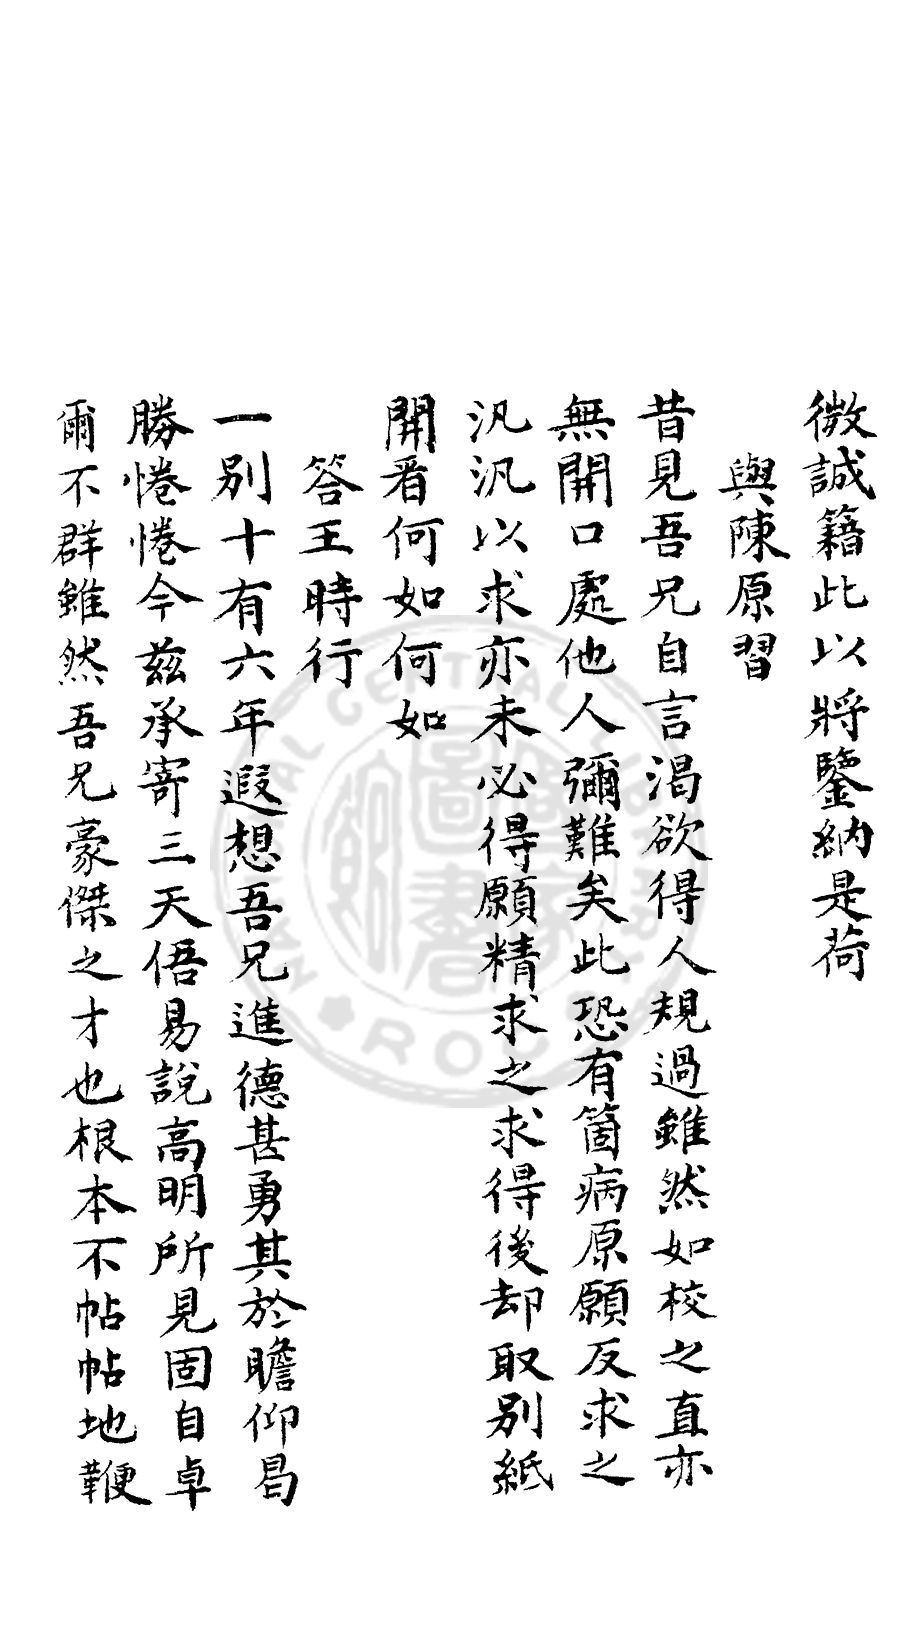 微誠籍此以將鑒納是荷
與陳原習
昔見吾兄自言渴欲得人規過雖然如校之直亦
無開口處他人彌難矣此恐有箇病原願反求之
汎汎以求亦未必得願精求之求得後却取別紙
開看何如何如
答王時行
一別十有六年遐想吾兄進德甚勇其於瞻仰曷
勝惓惓今兹承寄三天俉易說高明所見固自卓
爾不群雖然吾兄豪傑之才也根本不帖帖地鞭
NATIONAL CENTRAL LIBRARY
ROC
國家圖書館